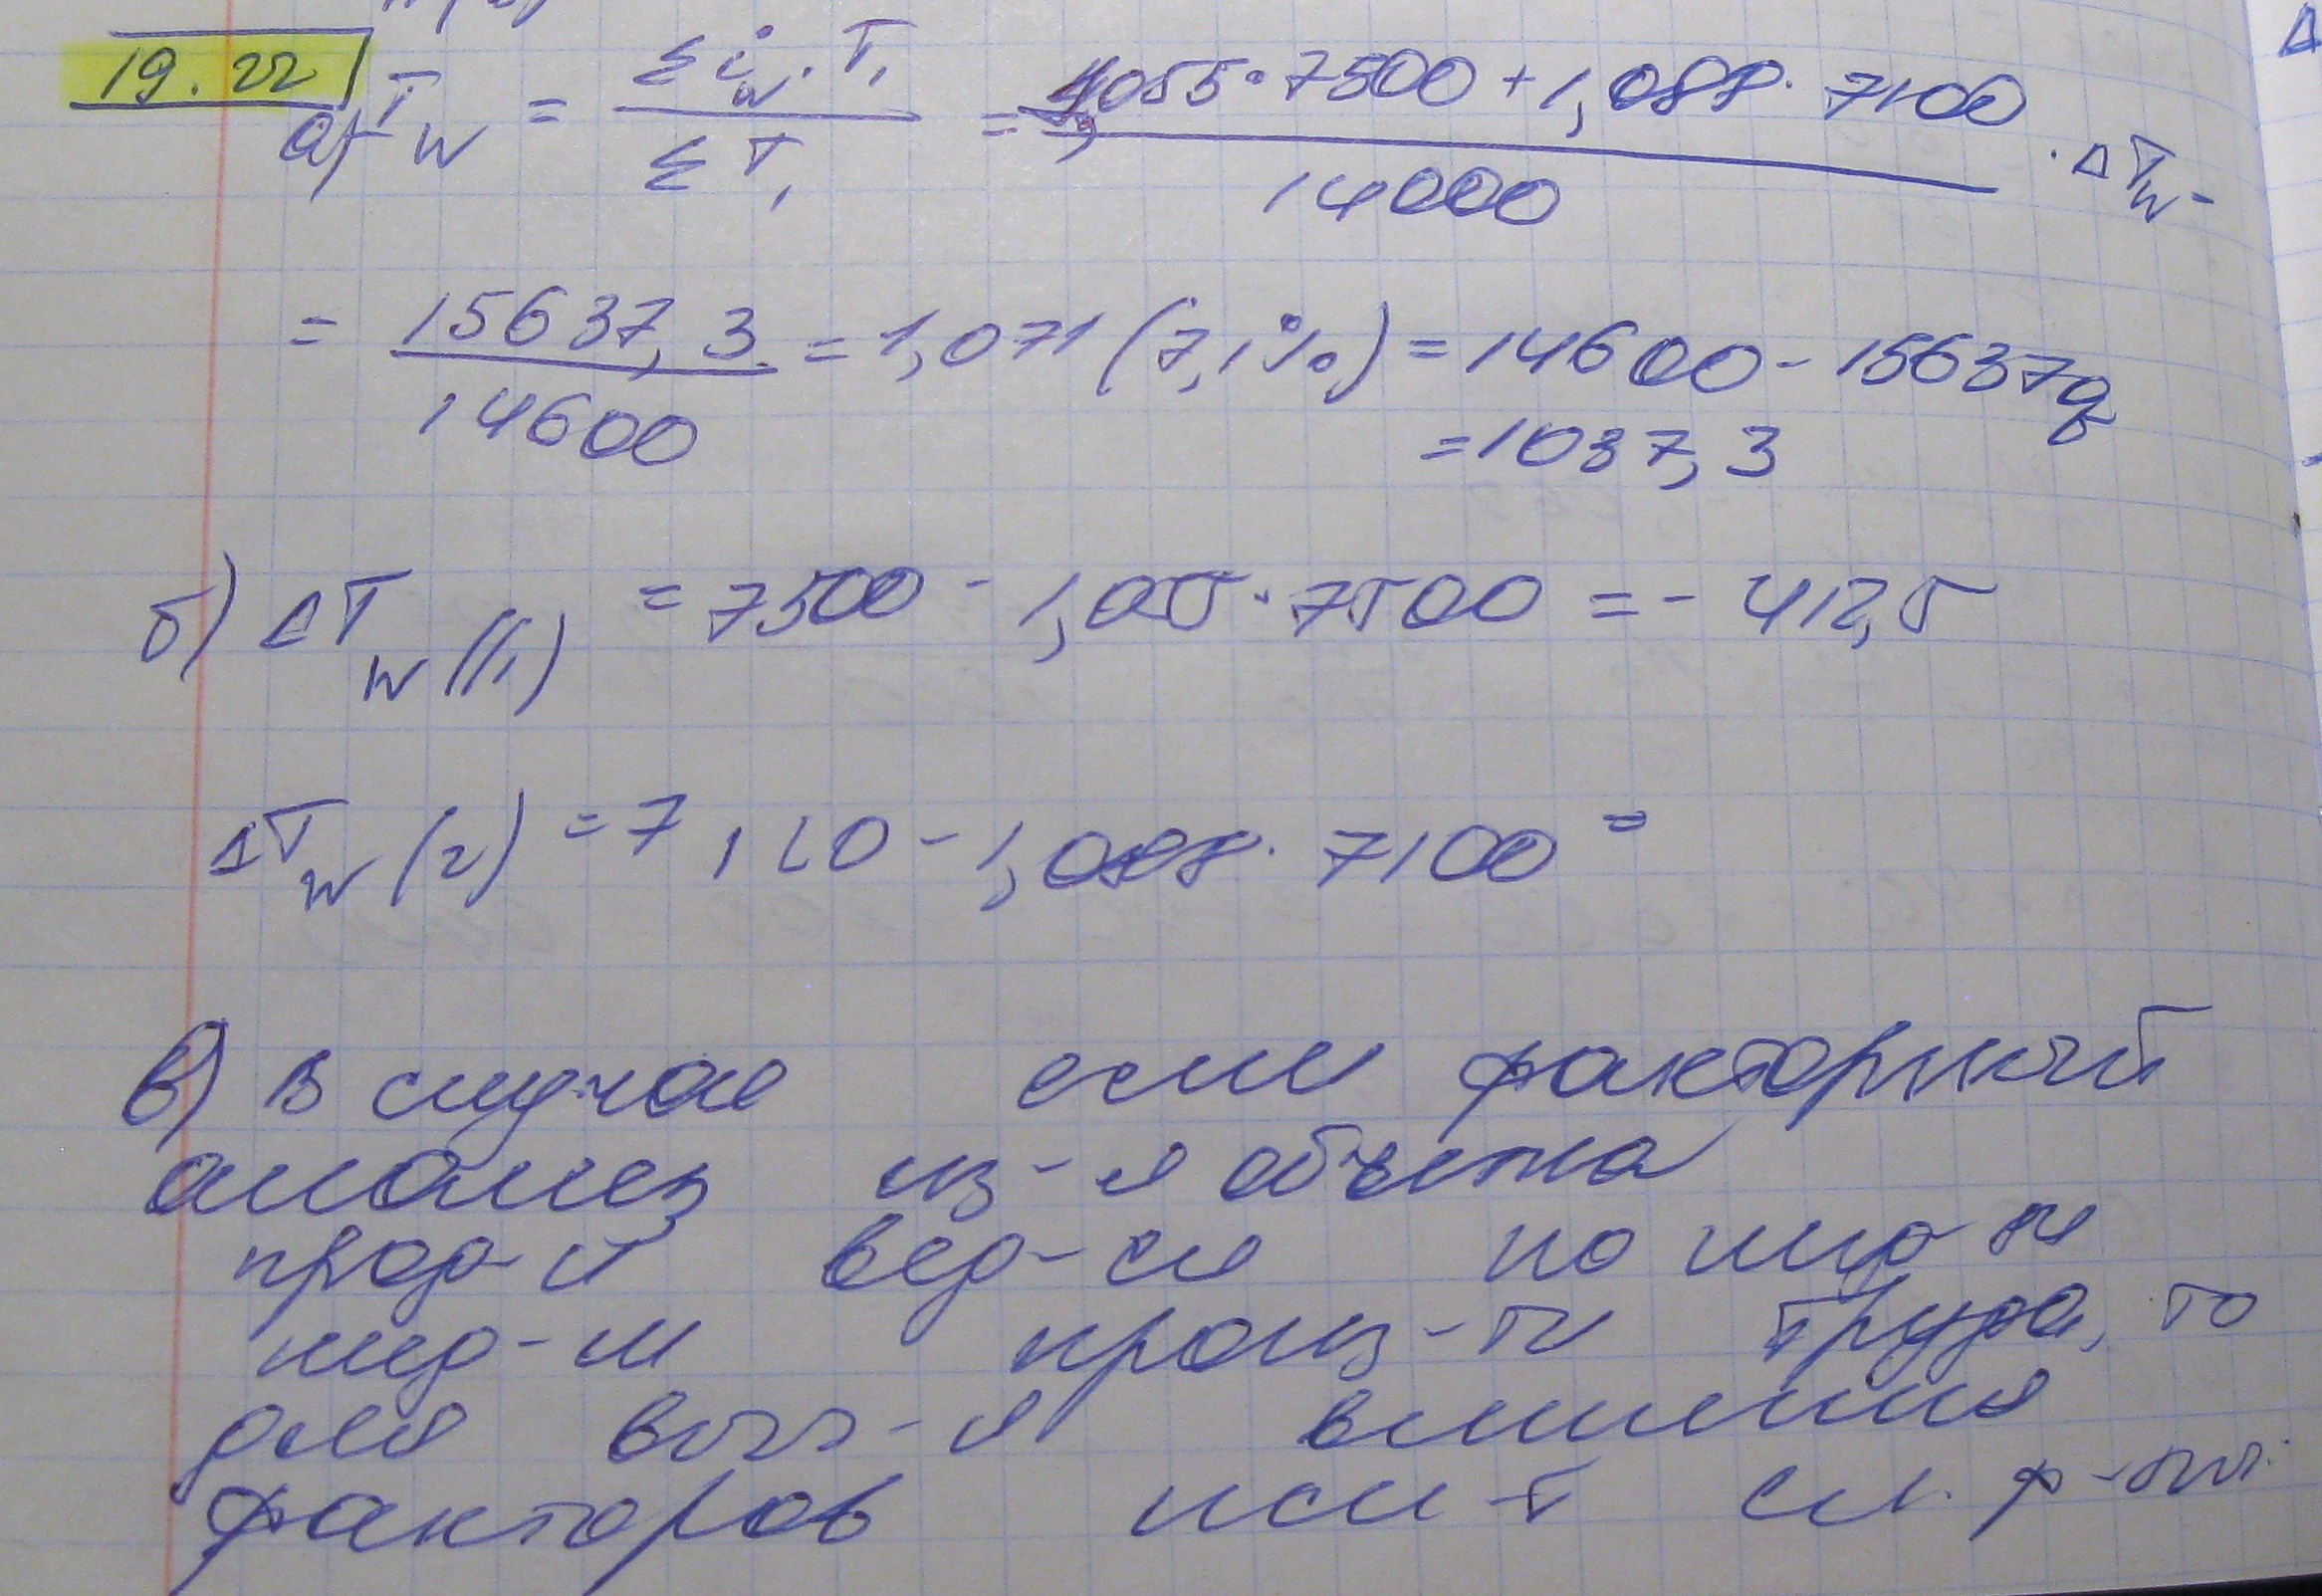 19.22
а) T_W = Σ i_W · T₁ / Σ T₁ = 1,055 · 7500 + 1,088 · 7100 / 14000 · ΔT_W -
= 15637,3 / 14600 = 1,071 (7,1%) = 14600 - 15637
= 1037,3
б) ΔT_W (1) = 7500 - 1,05 · 7500 = - 412,5
ΔT_W (2) = 7100 - 1,088 · 7100 =
в) в случае если факторный
анализ из-я объема
прод-и вед-ся по
инд-м произ-ти труда, то
для влияния
факторов исп-т сл. ф-